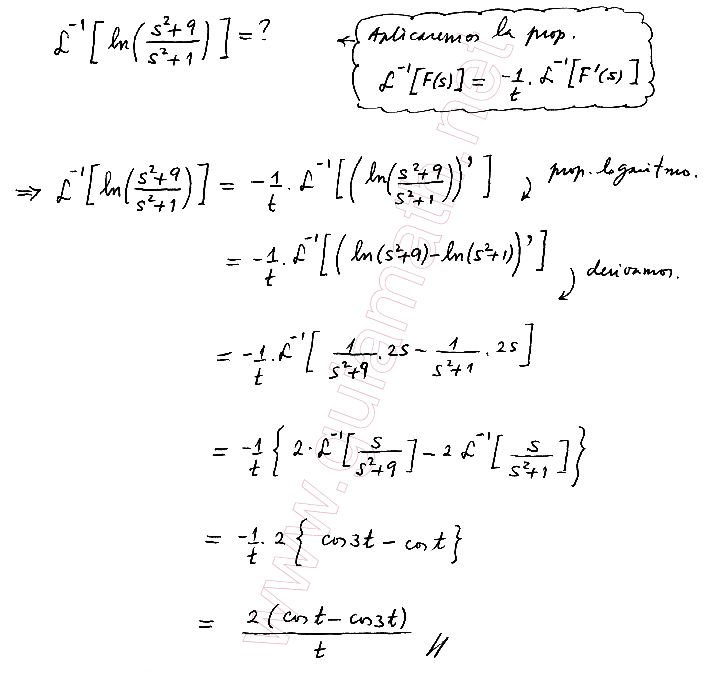 ℒ⁻¹[ln((s²+9)/(s²+1))] = ?
Aplicaremos la prop.
ℒ⁻¹[F(s)] = -1/t · ℒ⁻¹[F'(s)]
⇒ ℒ⁻¹[ln((s²+9)/(s²+1))] = -1/t · ℒ⁻¹[(ln((s²+9)/(s²+1)))'] prop. logaritmo.
= -1/t · ℒ⁻¹[(ln(s²+9)-ln(s²+1))'] derivamos.
= -1/t · ℒ⁻¹[1/(s²+9) · 2s - 1/(s²+1) · 2s]
= -1/t {2 · ℒ⁻¹[s/(s²+9)] - 2 ℒ⁻¹[s/(s²+1)]}
= -1/t · 2{cos3t - cost}
= 2(cost - cos3t)/t //
www.guiamath.net